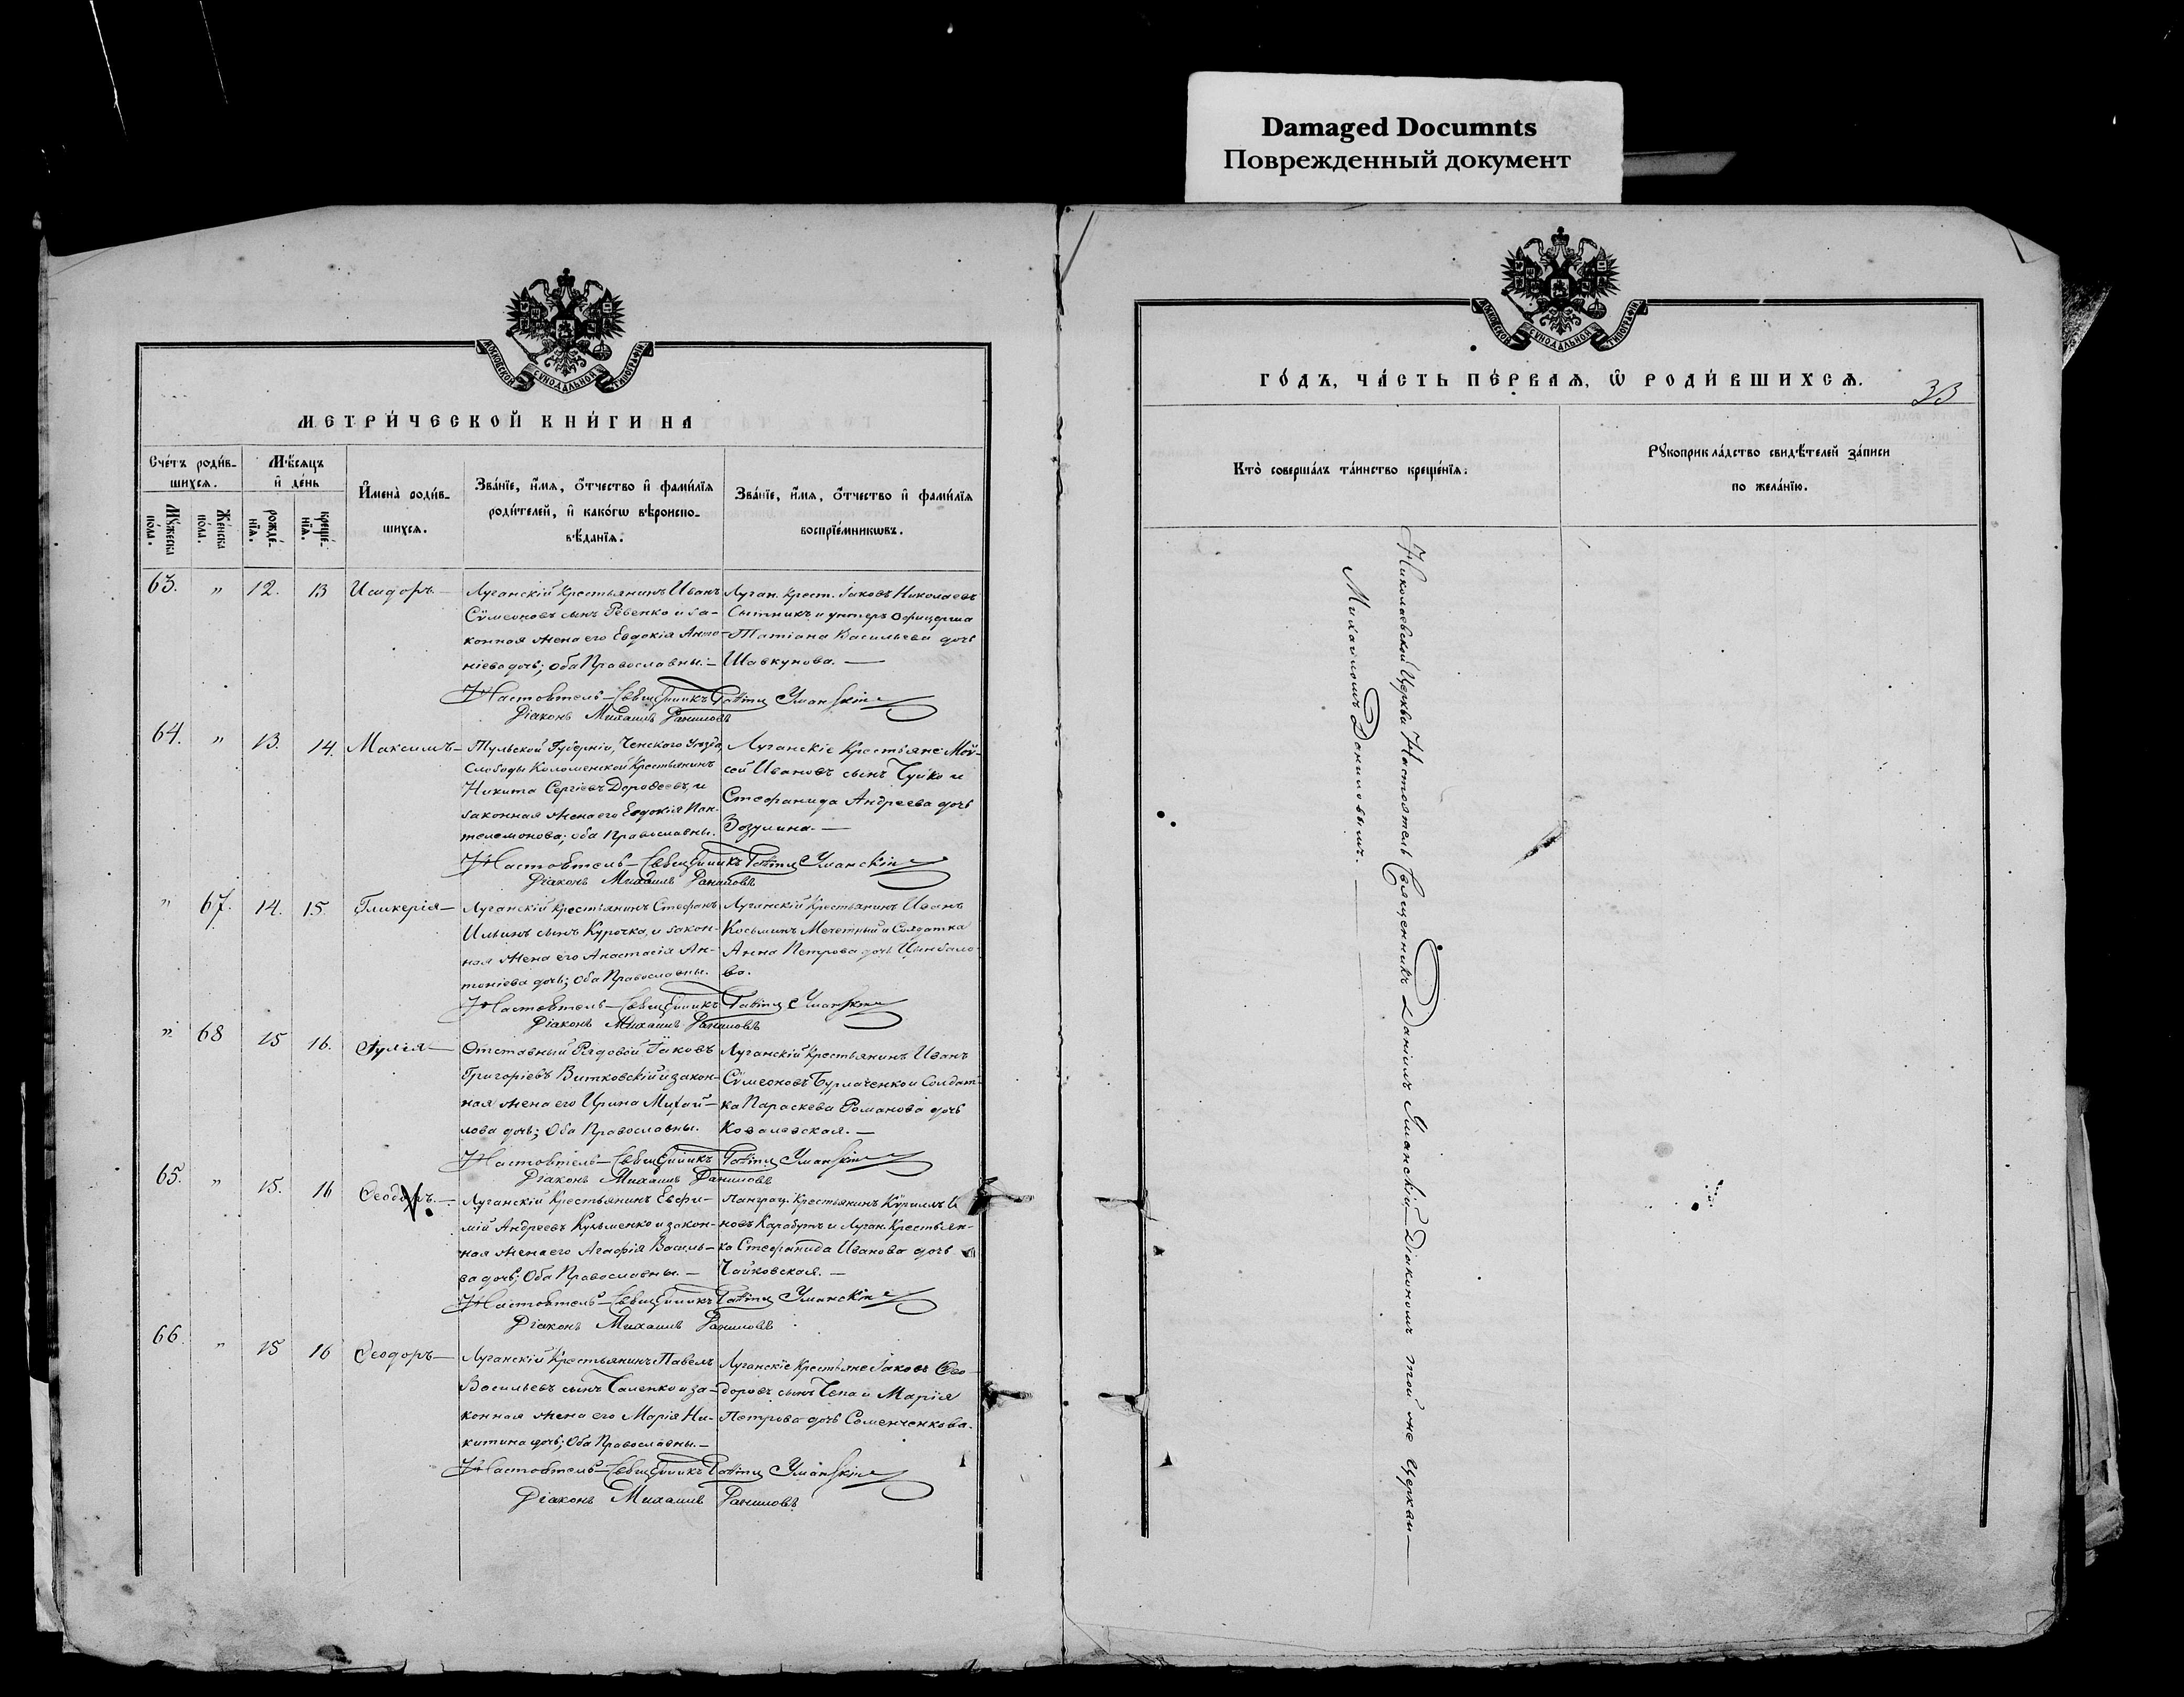 Damaged Documnts
Поврежденный документ
МОСКОВСКОЙ СУНОДАЛЬНОЙ ТИПОГРАФІИ
МЕТРИ́ЧЕСКОЙ КНИ́ГИ НА
Сче́тъ роди́в-
шихсѧ.
Мꙋ́жеска
по́ла.
Же́нска
по́ла.
Мѣ́сѧцъ
и҆ де́нь
рожде́-
нїѧ.
креще́-
нїѧ.
И҆мена̀ роди́в-
шихсѧ.
Зва́нїе, и҆́мѧ, ѻ҆́тчество и҆ фами́лїѧ
роди́телей, и҆ како́гѡ вѣроиспо-
вѣ́данїѧ.
Зва́нїе, и҆́мѧ, ѻ҆́тчество и҆ фами́лїѧ
воспрїе́мникѡвъ.
63. „ 12. 13 Исидоръ.—
Луганскій Крестьянинъ Иванъ
Сѵмеоновъ сынъ Ревенко и за-
конная жена его Евдокія Анто-
ніева дочь; оба Православны.—
Луган. Крест. Іаковъ Николаевъ
Сытникъ и унтеръ офицерша
Татіана Васильева дочь
Шавкунова.—
Настоятель—Священникъ Даніилъ Уманскій
Діаконъ Михаилъ Даниловъ
64. „ 13. 14. Максимъ—
Тульской Губерніи, Ченского Уезда
Слободы Коломенской Крестьянинъ
Никита Сергіевъ Дороѳеевъ, и
законная жена его Евдокія Пан-
телемонова; оба Православны.
Луганскіе Крестьяне Мой-
сей Ивановъ сынъ Чуйко и
Стефанида Андреева дочь
Зозулина.—
Настоятель—Священникъ Даніилъ Уманскій
Діаконъ Михаилъ Даниловъ
„ 67. 14. 15. Гликерія—
Луганскій Крестьянинъ Стефанъ
Ильинъ сынъ Курочка, и закон-
ная жена его Анастасія Ан-
тоніева дочь; Оба Православны.
Луганскій Крестьянинъ Иванъ
Косьминъ Мечетный и Солдатка
Анна Петрова дочь Цымбало-
ва.
Настоятель—Священникъ Даніилъ Уманскій
Діаконъ Михаилъ Даниловъ
„ 68 15 16.
Отставный Рядовой Іаковъ
Григоріевъ Витковскій и закон-
ная жена его Ирина Михай-
лова дочь; Оба Православны.
Луганскій Крестьянинъ Иванъ
Сѵмеоновъ Бурлаченко и Солдат-
ка Параскева Романова дочь
Ковалевская.—
Настоятель—Священникъ Даніилъ Уманскій
Діаконъ Михаилъ Даниловъ
65. „ 15. 16 Ѳеодоръ.—
Луганскій Крестьянинъ Евфи-
мій Андреевъ Кузьменко и закон-
ная жена его Агафія Василь-
ва дочь; Оба Православны.—
Крестьянинъ Кѵриллъ
новъ Карабутъ и Луган. Крестьян-
ка Стефанида Иванова дочь
Чайковская.—
Настоятель—Священникъ Даніилъ Уманскій
Діаконъ Михаилъ Даниловъ
66. „ 15 16 Ѳеодоръ—
Луганскій Крестьянинъ Павелъ
Васильевъ сынъ Галенко и за-
конная жена его Марія Ни-
китина дочь; Оба Православны.—
Луганскіе Крестьяне Іаковъ Ѳео-
доровъ сынъ Чепа и Марія
Петрова дочь Семенченкова.
Настоятель—Священникъ Даніилъ Уманскій
Діаконъ Михаилъ Даниловъ
МОСКОВСКОЙ СУНОДАЛЬНОЙ ТИПОГРАФІИ
ГО́ДЪ, ЧА́СТЬ ПЕ́РВАѦ, Ѽ РОДИ́ВШИХСѦ.
33
Кто̀ соверша́лъ та́инство креще́нїѧ.
Рꙋкоприкла́дство свидѣ́телей за́писи
по жела́нїю.
Николаевской Церкви Настоятель Священникъ Даніилъ Уманскій—Діакономъ той же Церкви—
Михаиломъ Даниловымъ.—